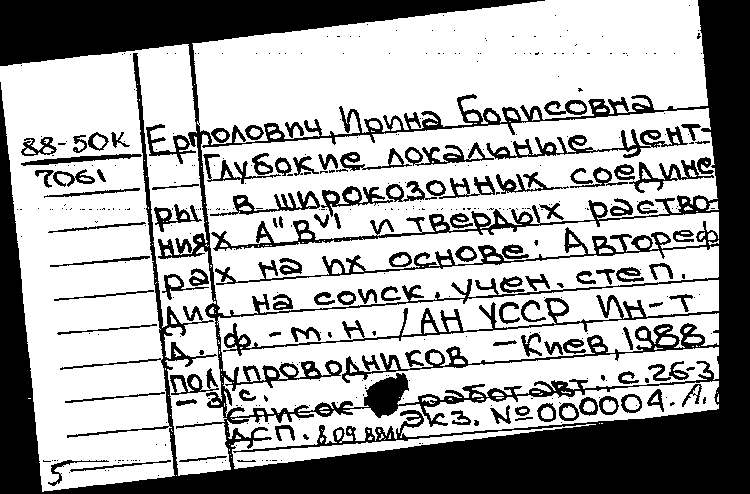 88-50К
7061
Ермолович, Ирина Борисовна.
Глубокие локальные цент-
ры в широкозонных соедине
ниях АᴵᴵВⱽᴵ и твердых раство-
рах на их основе: Автореф
дис. на соиск. учен. степ.
д. ф.-м.н. /АН УССР, Ин-т
полупроводников. – Киев, 1988
– 31с.
Список работ авт.: с.26-3
ДСП. 8.09 Экз. №000004.
5